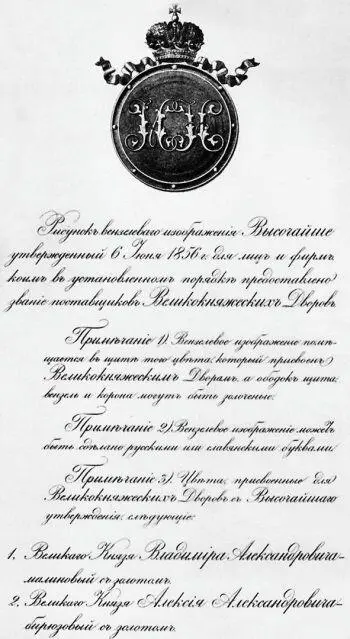 Рисунокъ вензелеваго изображенія Высочайше
утвержденный 6 Іюня 1856 г. для лицъ и фирмъ
коимъ въ установленномъ порядкѣ предоставлено
званіе поставщиковъ Великокняжескихъ Дворовъ
Примѣчаніе 1). Вензелевое изображеніе помѣ-
щается въ щитѣ того цвѣта, который присвоенъ
Великокняжескимъ Дворамъ, а ободокъ щита,
вензель и корона могутъ быть золоченые.
Примѣчаніе 2). Вензелевое изображеніе можетъ
быть сдѣлано русскими или славянскими буквами.
Примѣчаніе 3) Цвѣта, присвоенные для
Великокняжескихъ Дворовъ съ Высочайшаго
утвержденія, слѣдующіе:
1. Великаго Князя Владиміра Александровича-
малиновый съ золотомъ.
2. Великаго Князя Алексія Александровича-
бирюзовый съ золотомъ.